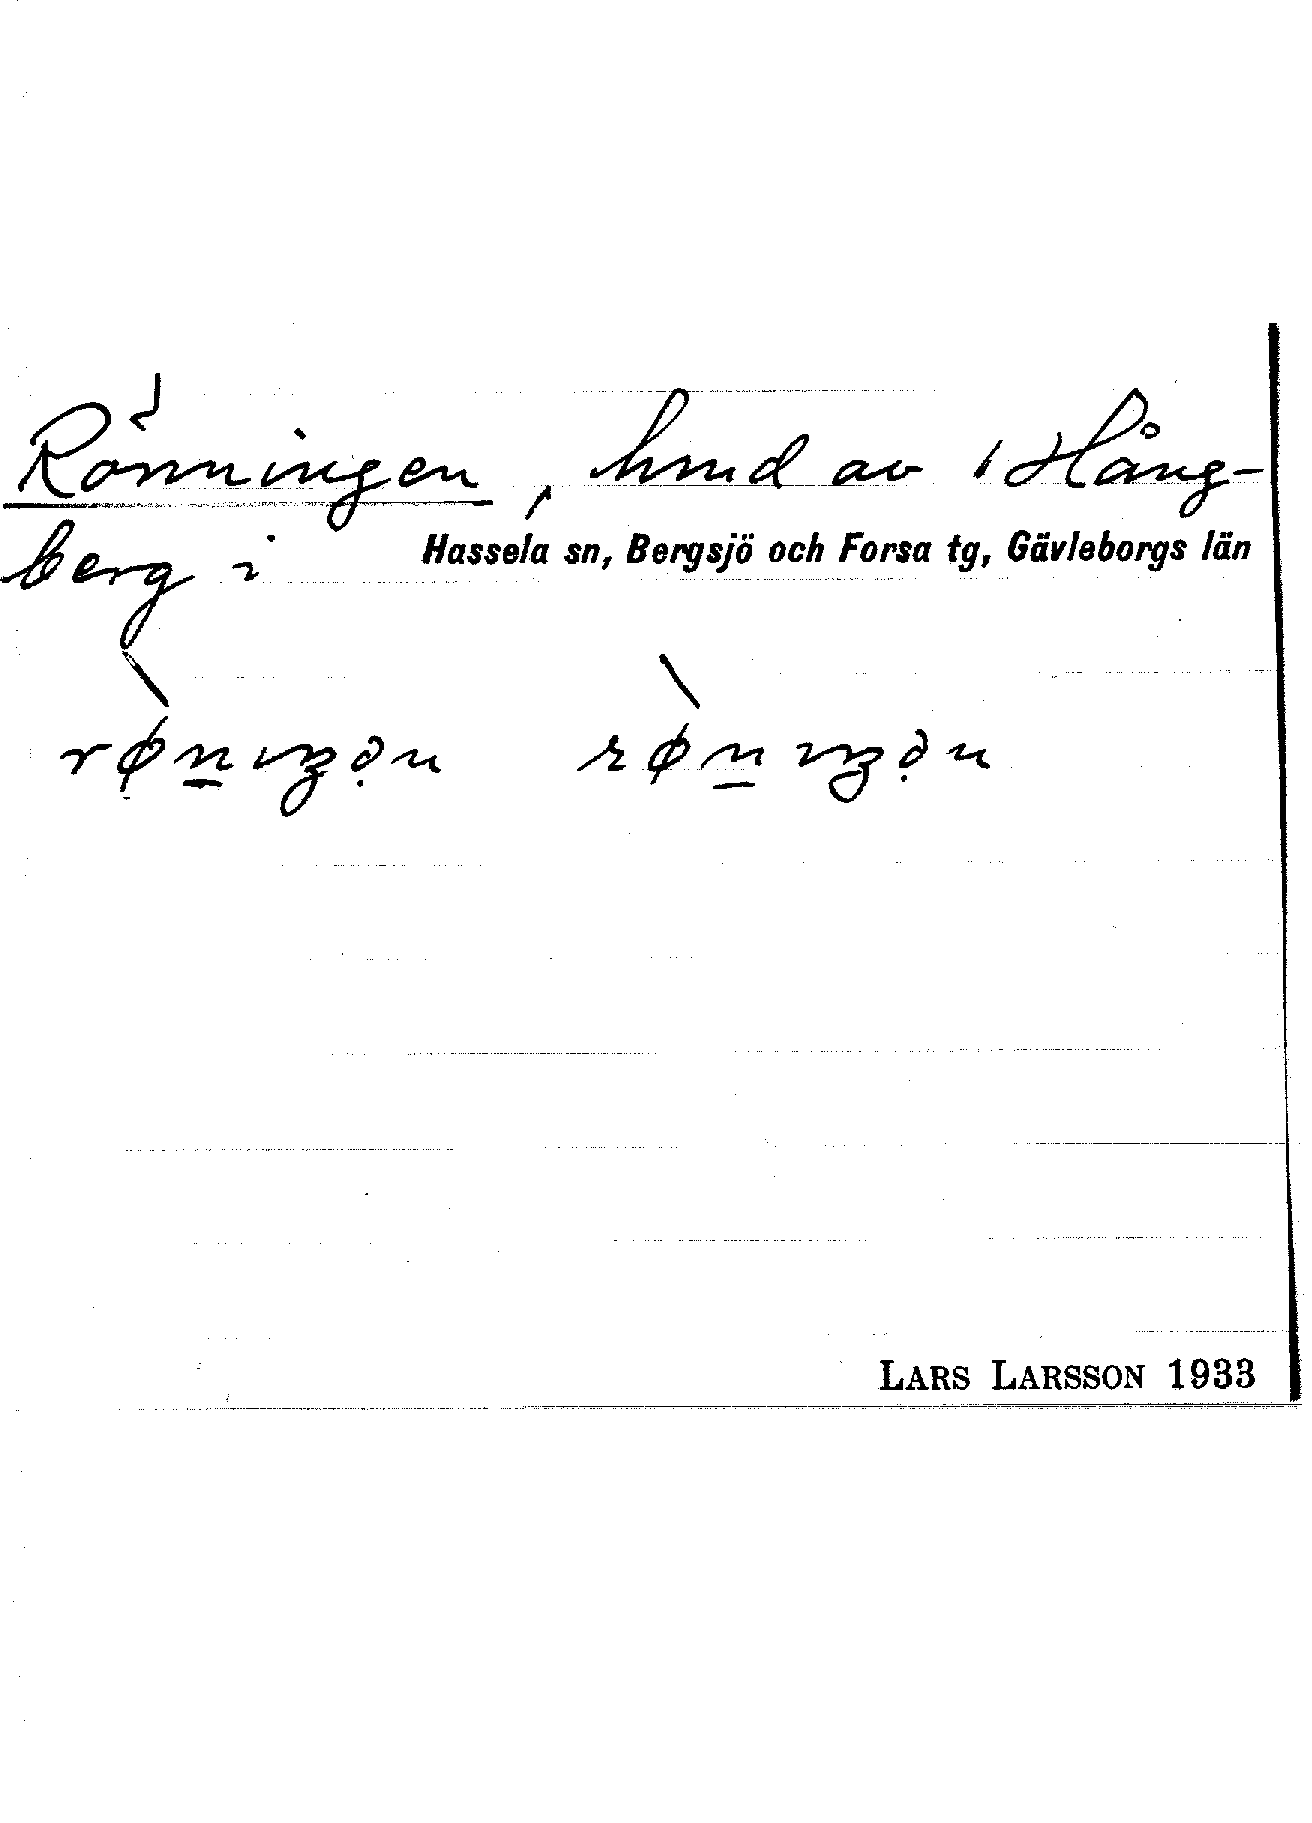 Rönningen, hmd av 1 Hång-
berg i Hassela sn, Bergsjö och Forsa tg, Gävleborgs län
LARS LARSSON 1933